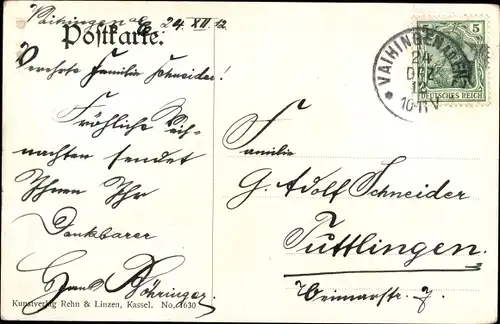 Vaihingen a/E 24. XII 12.
Postkarte.
Verehrte Familie Schneider!
Fröhliche Weih-
nachten sendet
Ihnen Ihr
Dankbarer
Hans Böhringer.
Kunstverlag Rehn & Linzen, Kassel. No. 1630
VAIHINGEN
24
DEZ
12
10-11 V
5
DEUTSCHES REICH
Familie
G. Adolf Schneider
Tuttlingen.
Weimarstr. 7.